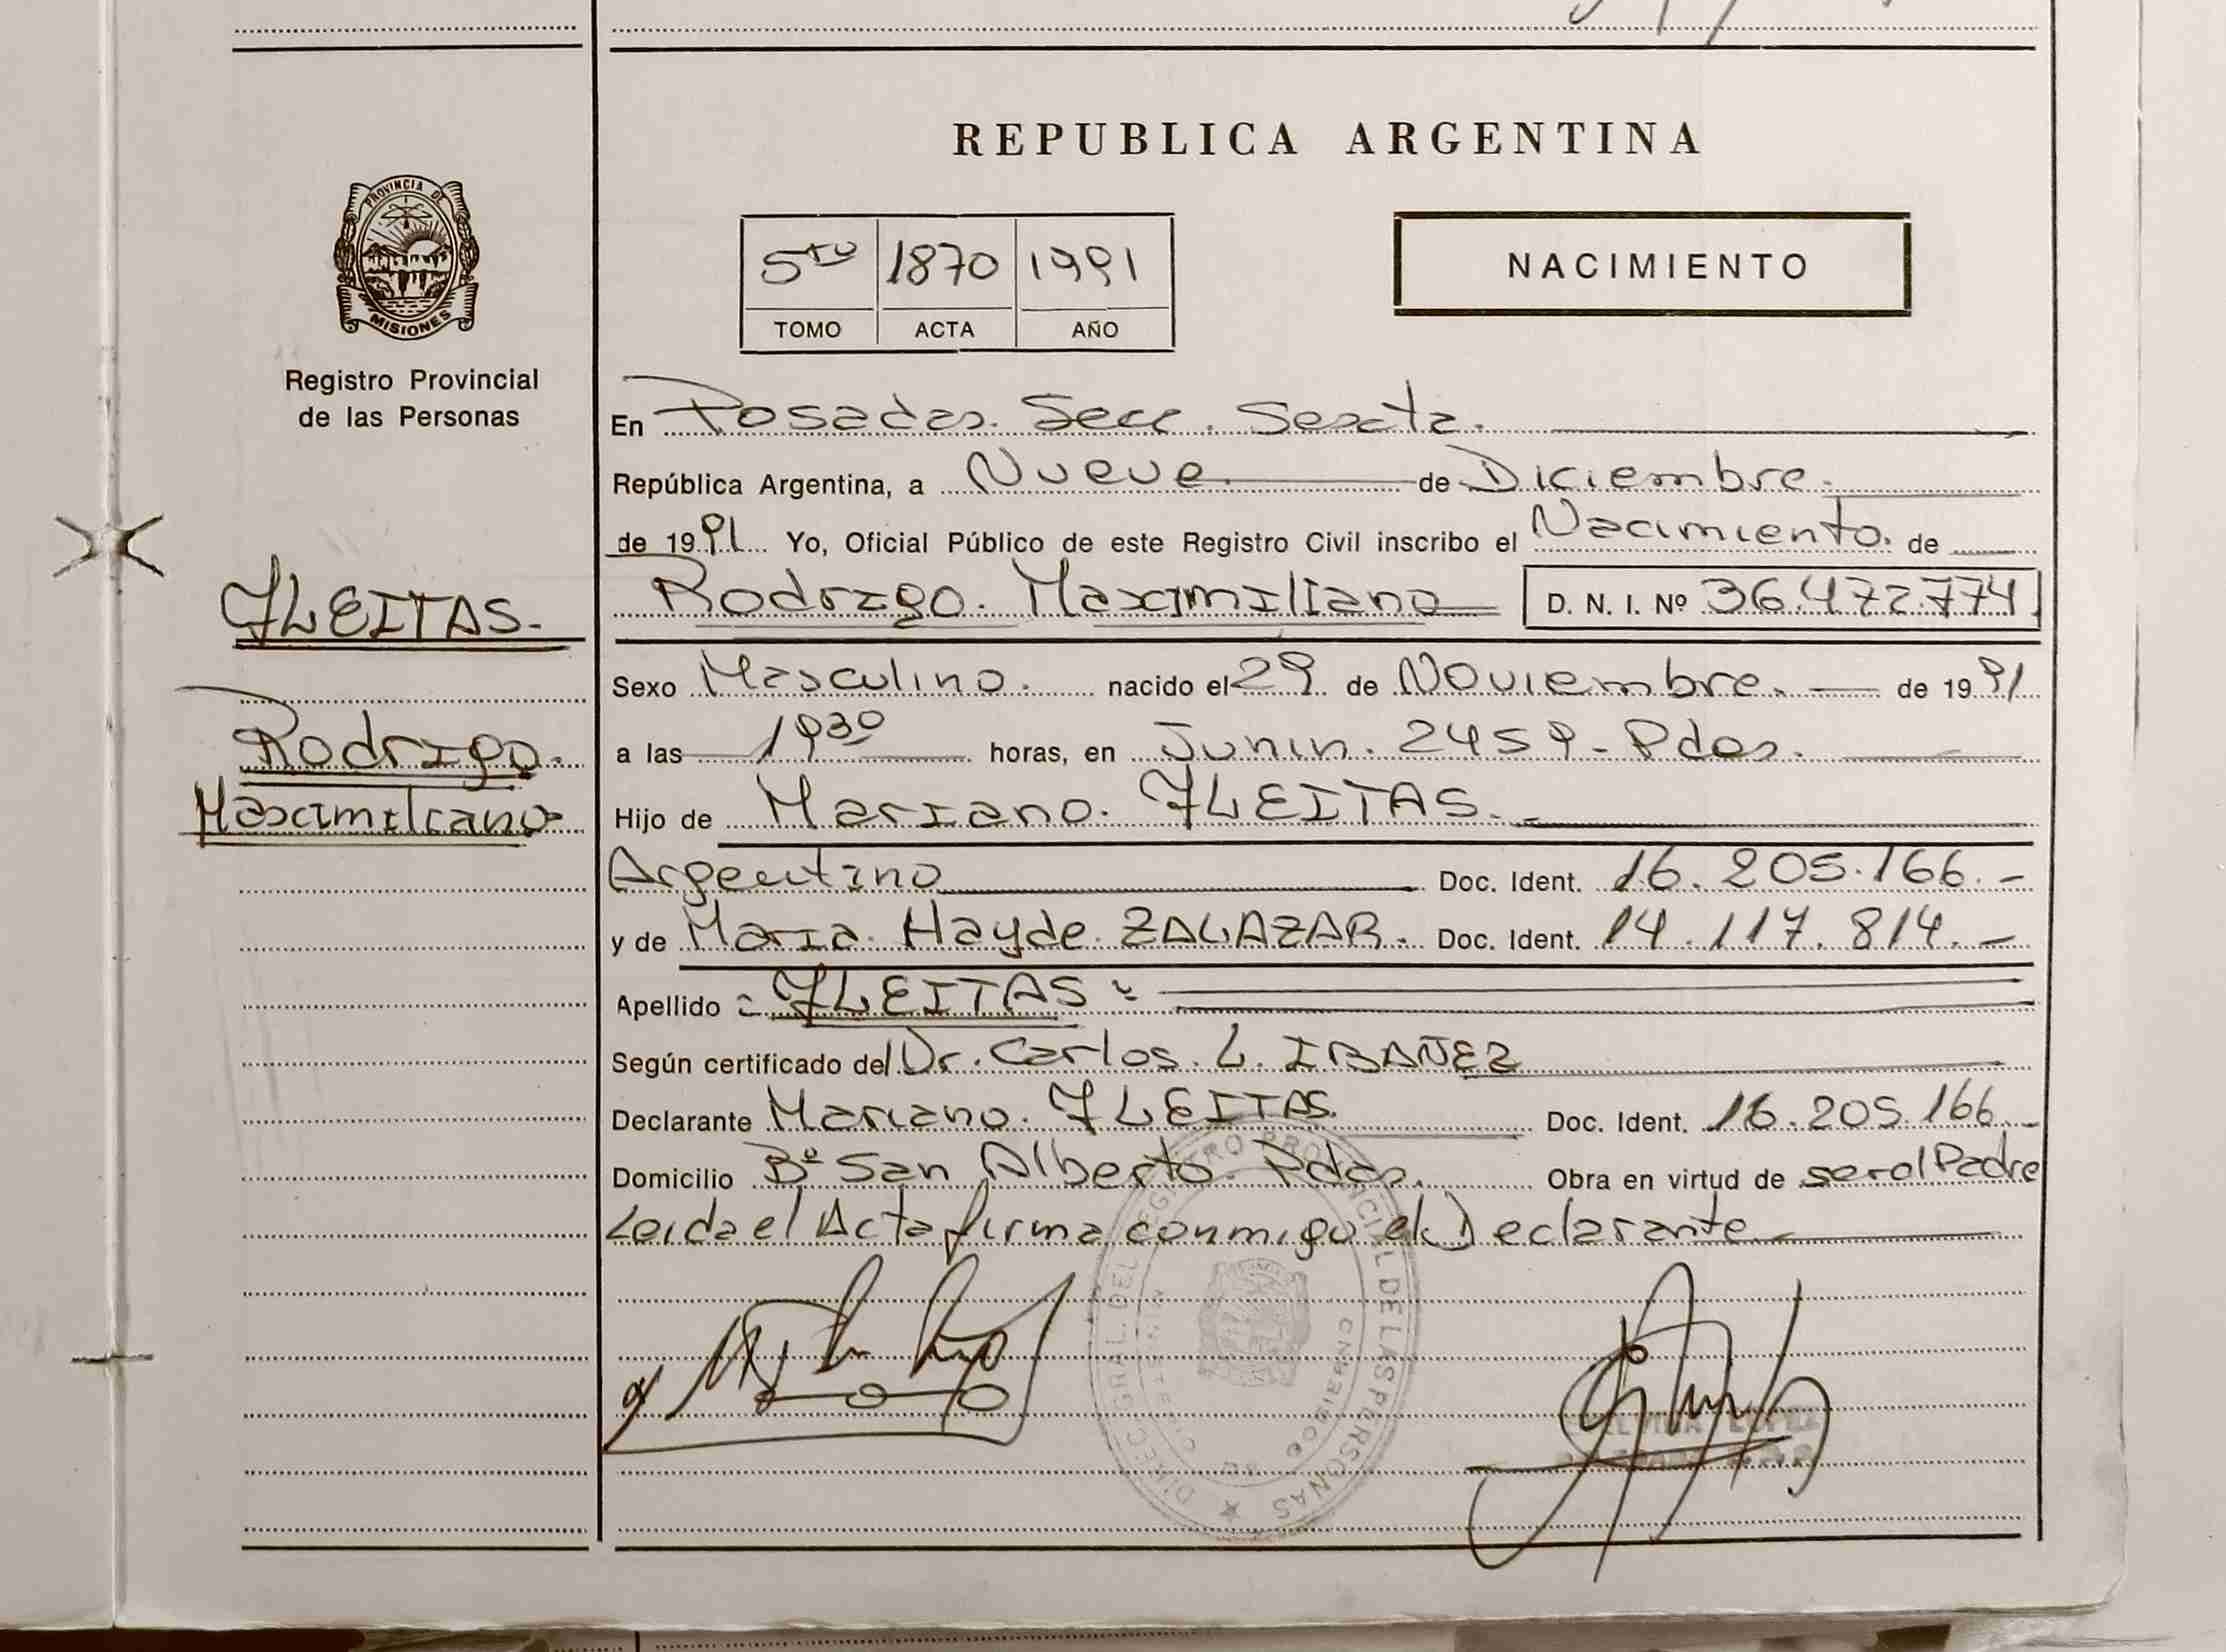 REPUBLICA ARGENTINA
PROVINCIA DE
MISIONES
Registro Provincial
de las Personas
5to 1870 1991
TOMO ACTA AÑO
NACIMIENTO
En Posadas. Secc. Sexta.
República Argentina, a Nueve de Diciembre.
de 1991 Yo, Oficial Público de este Registro Civil inscribo el Nacimiento. de
FLEITAS.
Rodrigo. Maximiliano D. N. I. Nº 36.472.774
Sexo Masculino. nacido el 29 de Noviembre. de 1991
Rodrigo.
Maximiliano
a las 1930 horas, en Junin. 2459 - Pdas.
Hijo de Mariano. FLEITAS.
Argentino Doc. Ident. 16.205.166.-
y de Maria. Hayde. ZALAZAR. Doc. Ident. 14.117.814.-
Apellido : FLEITAS :
Según certificado del Dr. Carlos. L. IBAÑEZ
Declarante Mariano. FLEITAS. Doc. Ident. 16.205.166.-
Domicilio Bº San Alberto. Pdas. Obra en virtud de ser el Padre
Leida el Acta firma conmigo el Declarante
DIREC. GRAL. DEL REGISTRO PROVINCIAL DE LAS PERSONAS